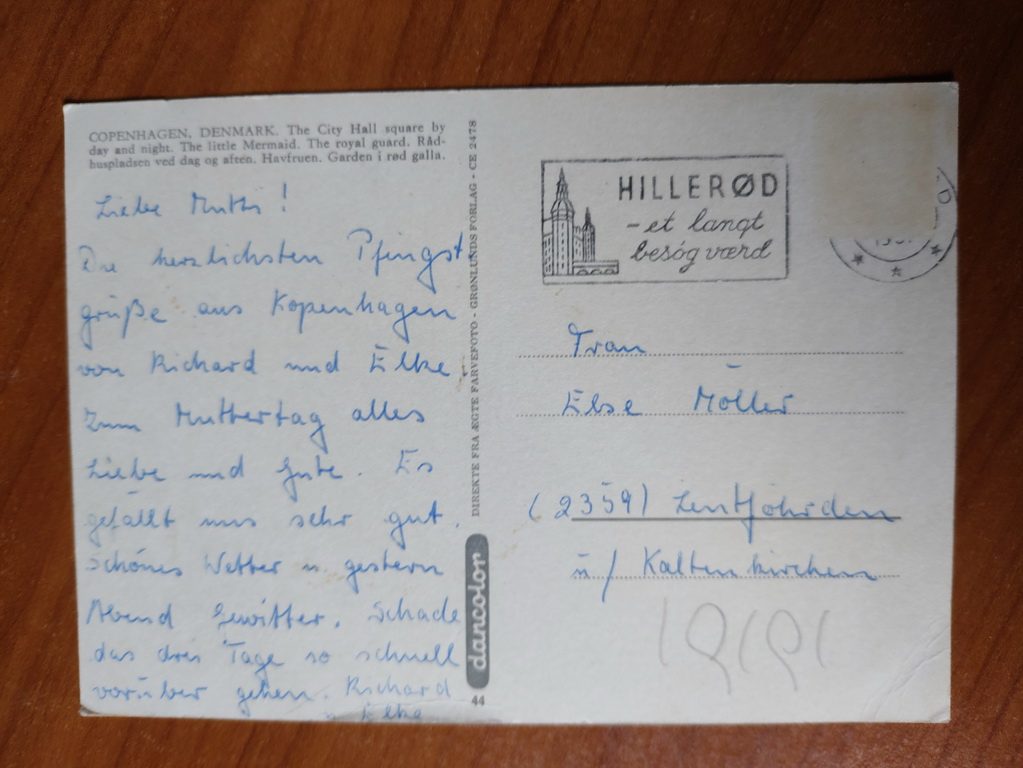 COPENHAGEN, DENMARK. The City Hall square by
day and night. The little Mermaid. The royal guard. Råd-
huspladsen ved dag og aften. Havfruen. Garden i rød galla.
Liebe Mutti!
Die herzlichsten Pfingst
grüße aus Kopenhagen
von Richard und Elke.
Zum Muttertag alles
Liebe und Gute. Es
gefällt uns sehr gut.
schönes Wetter u gestern
Abend Gewitter. Schade
das drei Tage so schnell
vorüber gehen. Richard
u Elke
DIREKTE FRA ÆGTE FARVEFOTO - GRØNLUNDS FORLAG - CE 2478
dancolor
44
HILLERØD
- et langt
besög værd
Frau
Else Möller
(2359) Lentföhrden
ü/ Kaltenkirchen